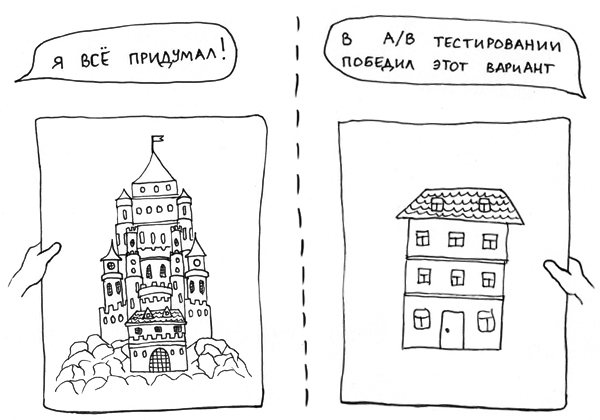 Я ВСЁ ПРИДУМАЛ!
В А/В ТЕСТИРОВАНИИ
ПОБЕДИЛ ЭТОТ ВАРИАНТ